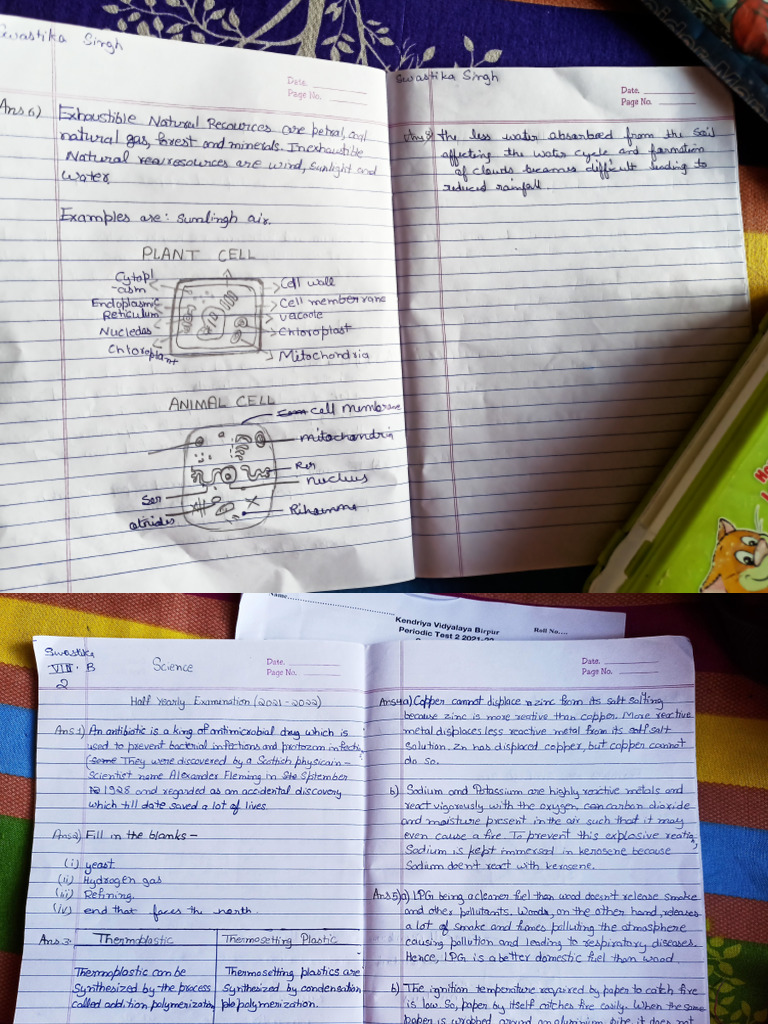 Swastika Singh
Date.
Page No.
Ans 6) Exhoustible Natural Recources are petrol, coal
natural gas, forest and minerals. Inexhaustible
Natural rea resources are wind, sunlight and
water,
Examples are: Sumlingh air.
PLANT CELL
Cytopl
-asm
Endoplasmic
Reticulum
Nucledas
Chloroplant
Cell wall
Cell memberrane
vacoole
Chloroplast
Mitochondria
ANIMAL CELL
cell membrane
mitochandria
Rer
nucleus
Ser
Swastika Singh
Date.
Page No.
Ans 8) the less water absanbeed from the Soil
affecting the water cycle and farmation
of clouds becomes difficult leading to
reduced rainfall.
Name
Kendriya Vidyalaya Birpur
Roll No....
Periodic Test 2 2021-22
Swastika
VIII - B
2
Science
Date.
Page No.
Half Yearly Examination (2021-2022)
Ans 1) An antibiotic is a king of antimicrobial drug which is
used to prevent bacterial infections and protozoan infectio
They were discovered by a Scottish physicain -
Scientist name Alexander Fleming in Sptember
1928 and regarded as an accidental discovery
which till date saved a lot of lives.
Ans 2) Fill in the blanks -
(i) yeast
(ii) Hydrogen gas
(iii) Refining.
(iv) end that faces the north.
Ans 3. Thermoblastic Thermosetting Plastic
Thermoplastic can be
Synthesized by the process
called addition polymerization
Thermosetting plastics are
Synthesized by condensation
polymerization.
Date.
Page No.
Ans 4 a) Copper cannot displace zinc from its salt salting
because zinc is more reative than copper. More reactive
metal displaces less reactive metal from its salt
solution. Zn has displaced copper, but copper cannot
do so.
b) Sodium and Potassium are highly reactive metals and
react vigorously with the oxygen, carbon dioxide
and moisture present in the air such that it may
even cause a fire. To prevent this explosive reatin,
Sodium is kept immersed in kerosene because
Sodium doen't react with kerosene.
Ans 5) a) LPG being a cleaner fuel than wood doesn't release smoke
and other pollutants. Woods, on the other hand, releases
a lot of smoke and fumes polluting the atmosphere
causing pollution and leading to respiratory diseases.
Hence, LPG is a better domestic fuel than wood.
b) The ignition temperature required by paper to catch fire
is low. So, paper by itself catches fire easily. When the same
paper is wrapped around an aluminium pipe, it does not